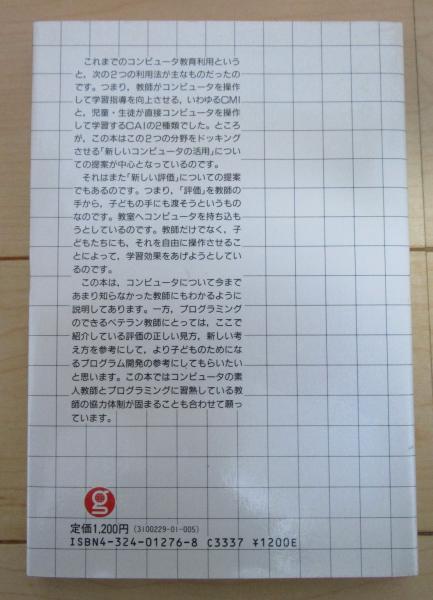 これまでのコンピュータ教育利用という
と、次の2つの利用法が主なものだったの
です。つまり、教師がコンピュータを操作
して学習指導を向上させる, いわゆるCMI
と、児童・生徒が直接コンピュータを操作
して学習するCAIの2種類でした。ところ
が、この本はこの2つの分野をドッキング
させる「新しいコンピュータの活用」につい
ての提案が中心となっているのです。
それはまた「新しい評価」についての提案
でもあるのです。つまり、「評価」を教師の
手から、子どもの手にも渡そうというもの
なのです。教室へコンピュータを持ち込も
うとしているのです。教師だけでなく、子
どもたちにも、それを自由に操作させるこ
とによって、学習効果をあげようとしてい
るのです。
この本は、コンピュータについて今まで
あまり知らなかった教師にもわかるように
説明してあります。一方、プログラミング
のできるベテラン教師にとっては、ここで
紹介している評価の正しい見方、新しい考
え方を参考にして、より子どものためにな
るプログラム開発の参考にしてもらいたい
と思います。この本ではコンピュータの素
人教師とプログラミングに習熟している教
師の協力体制が固まることも合わせて願っ
ています。
g
定価1,200円 (3100229-01-005)
ISBN4-324-01276-8 C3337 ¥1200E